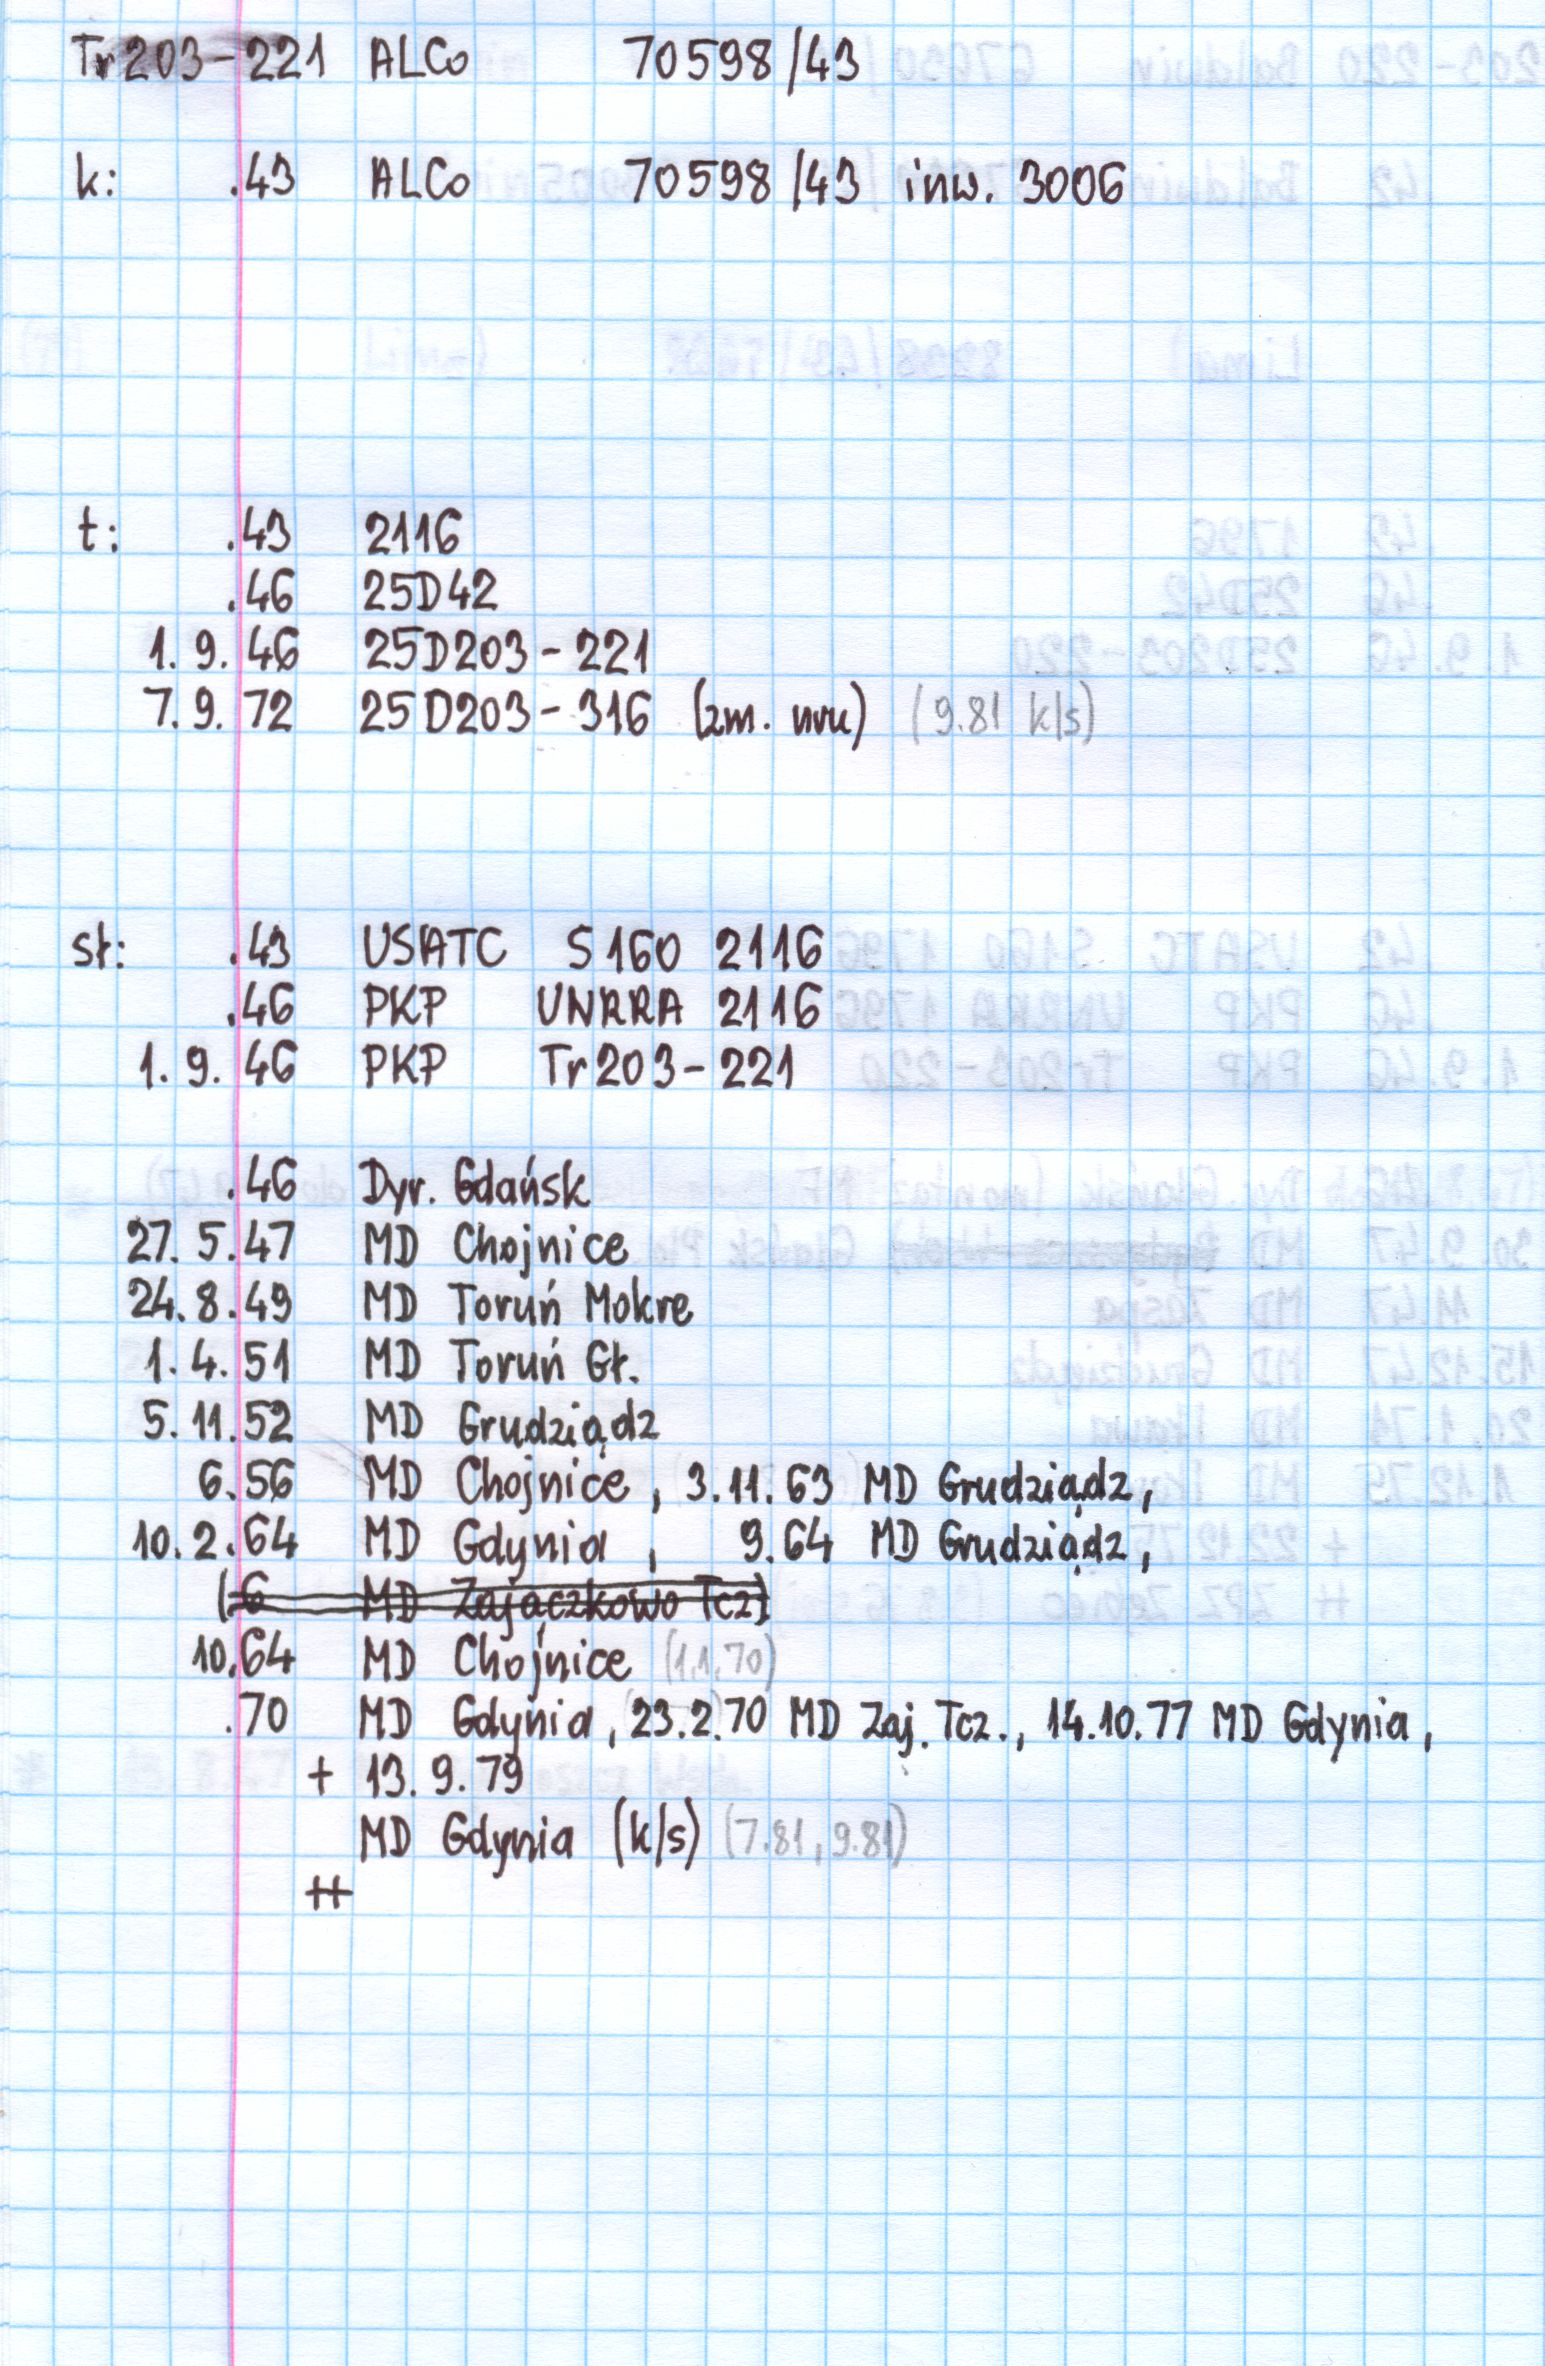 Tr203-221 ALCo 70598/43
k: .43 ALCo 70598/43 inw. 3006
t: .43 2116
.46 25D42
1.9.46 25D203-221
7.9.72 25D203-316 (zm. nru) (9.81 k/s)
sł: .43 USATC S160 2116
.46 PKP UNRRA 2116
1.9.46 PKP Tr203-221
.46 Dyr. Gdańsk
27.5.47 MD Chojnice
24.8.49 MD Toruń Mokre
1.4.51 MD Toruń Gł.
5.11.52 MD Grudziądz
6.56 MD Chojnice, 3.11.63 MD Grudziądz,
10.2.64 MD Gdynia, 9.64 MD Grudziądz,
(.6 MD Zajączkowo Tcz)
10.64 MD Chojnice (1.1.70)
.70 MD Gdynia, 23.2.70 MD Zaj. Tcz., 14.10.77 MD Gdynia,
+ 13.9.79
MD Gdynia (k/s) (7.81, 9.81)
++